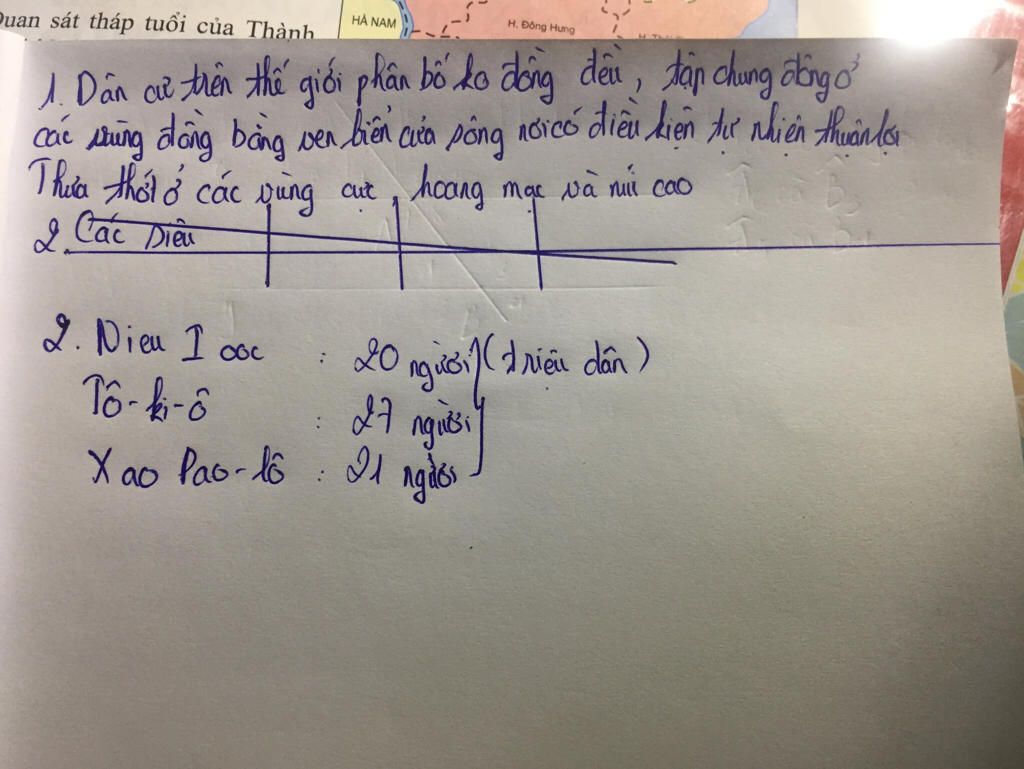 Quan sát tháp tuổi của Thành
HÀ NAM
H. Đông Hưng
1. Dân cư trên thế giới phân bố ko đồng đều, tập chung đông ở
các vùng đồng bằng ven biển cửa sông nơi có điều kiện tự nhiên thuận lợi
Thưa thớt ở các vùng cực, hoang mạc và núi cao
2. Các Diêu
2. Nieu I ooc : 20 người (triệu dân)
Tô-ki-ô : 27 người
Xao Pao-lô : 21 người